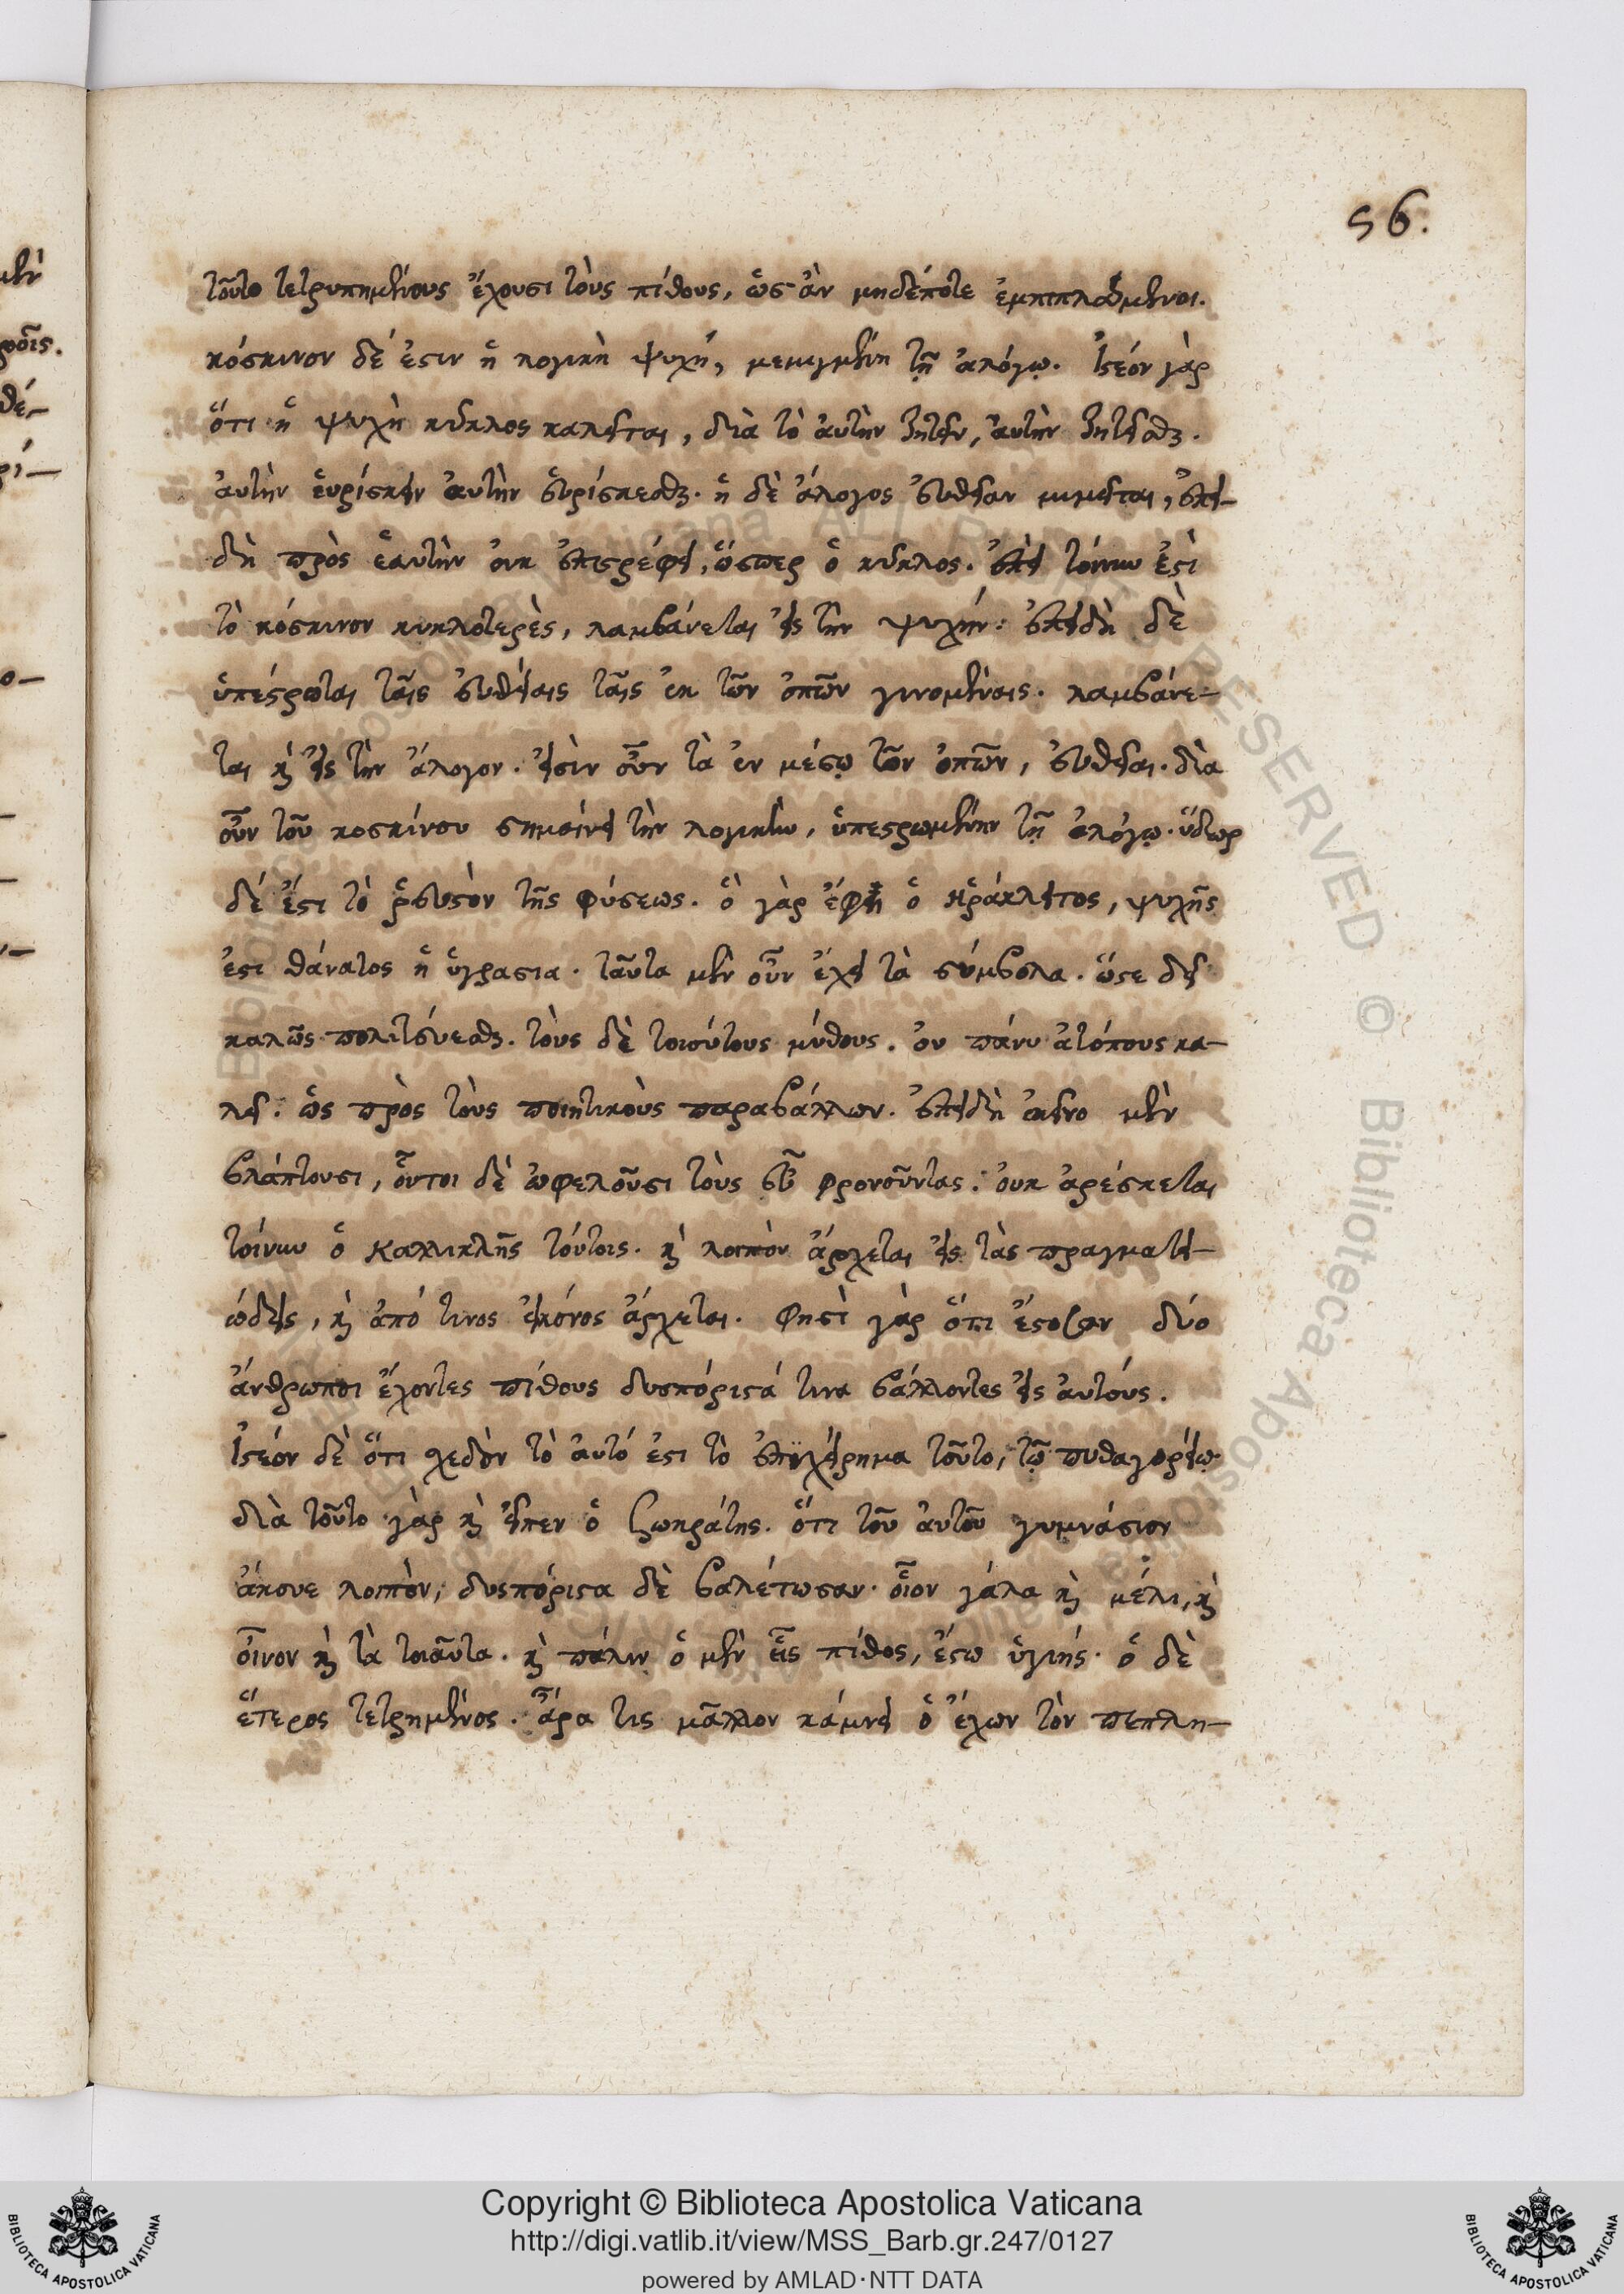 56.
τοῦτο τετρυπημένους ἔχουσι τοὺς πίθους, ὡς ἂν μηδέποτε ἐμπιπλάμενοι.
κόσκινον δέ ἐστιν ἡ λογικὴ ψυχή, μεμιγμένη τῇ ἀλόγῳ. ἰστέον γὰρ
ὅτι ἡ ψυχὴ κύκλος καλεῖται, διὰ τὸ αὐτὴν ζητεῖν, αὐτὴν ζητεῖσθαι.
αὐτὴν εὑρίσκειν αὐτὴν εὑρίσκεσθαι. ἡ δὲ ἄλογος εὐθεῖαν μιμεῖται, ἐπει–
δὴ πρὸς ἑαυτὴν οὐκ ἐπιστρέφει, ὥσπερ ὁ κύκλος. ἐπεὶ τοίνυν ἐστὶ
τὸ κόσκινον κυκλοτερὲς, λαμβάνεται εἰς τὴν ψυχήν. ἐπειδὴ δὲ
ὑπέστρωται ταῖς εὐθείαις ταῖς ἐκ τῶν ὀπῶν γινομέναις. λαμβάνε–
ται καὶ εἰς τὴν ἄλογον. εἰσὶν οὖν τὰ ἐν μέσῳ τῶν ὀπῶν, εὐθεῖαι. διὰ
οὖν τοῦ κοσκίνου σημαίνει τὴν λογικὴν, ὑπεστρωμένην τῇ ἀλόγῳ. ὕδωρ
δέ ἐστι τὸ ῥευστὸν τῆς φύσεως. ὃ γὰρ ἔφη ὁ Ἡράκλειτος, ψυχῆς
ἐστι θάνατος ἡ ὑγρασία. ταῦτα μὲν οὖν ἔχει τὰ σύμβολα. ὥστε δεῖ
καλῶς πολιτεύεσθαι. τοὺς δὲ τοιούτους μύθους. οὐ πάνυ ἀτόπους κα–
λεῖ. ὡς πρὸς τοὺς ποιητικοὺς παραβάλλων. ἐπειδὴ ἐκεῖνο μὲν
βλάπτουσι, οὗτοι δὲ ὠφελοῦσι τοὺς εὖ φρονοῦντας. οὐκ ἀρέσκεται
τοίνυν ὁ Καλλικλῆς τούτοις. καὶ λοιπὸν ἄρχεται εἰς τὰς πραγματει–
ώδεις, καὶ ἀπό τινος εἰκόνος ἄρχεται. Φησὶ γὰρ ὅτι ἔστωσαν δύο
ἄνθρωποι ἔχοντες πίθους δυσπόριστά τινα βάλλοντες εἰς αὐτούς.
ἰστέον δὲ ὅτι σχεδὸν τὸ αὐτό ἐστι τὸ ἐπιχείρημα τοῦτο, τῷ πυθαγορείῳ.
διὰ τοῦτο γὰρ καὶ εἶπεν ὁ Σωκράτης. ὅτι τοῦ αὐτοῦ γυμνάσιον
ἄκουε λοιπὸν, δυσπόριστα δὲ βαλέτωσαν. οἷον γάλα καὶ μέλι, καὶ
οἶνον καὶ τὰ τοιαῦτα. καὶ πάλιν ὁ μὲν εἷς πίθος, ἔστω ὑγιής. ὁ δὲ
ἕτερος τετρημένος. ἆρα τις μᾶλλον κάμνει ὁ ἔχων τὸν πεπλη–
Copyright © Biblioteca Apostolica Vaticana
http://digi.vatlib.it/view/MSS_Barb.gr.247/0127
powered by AMLAD·NTT DATA